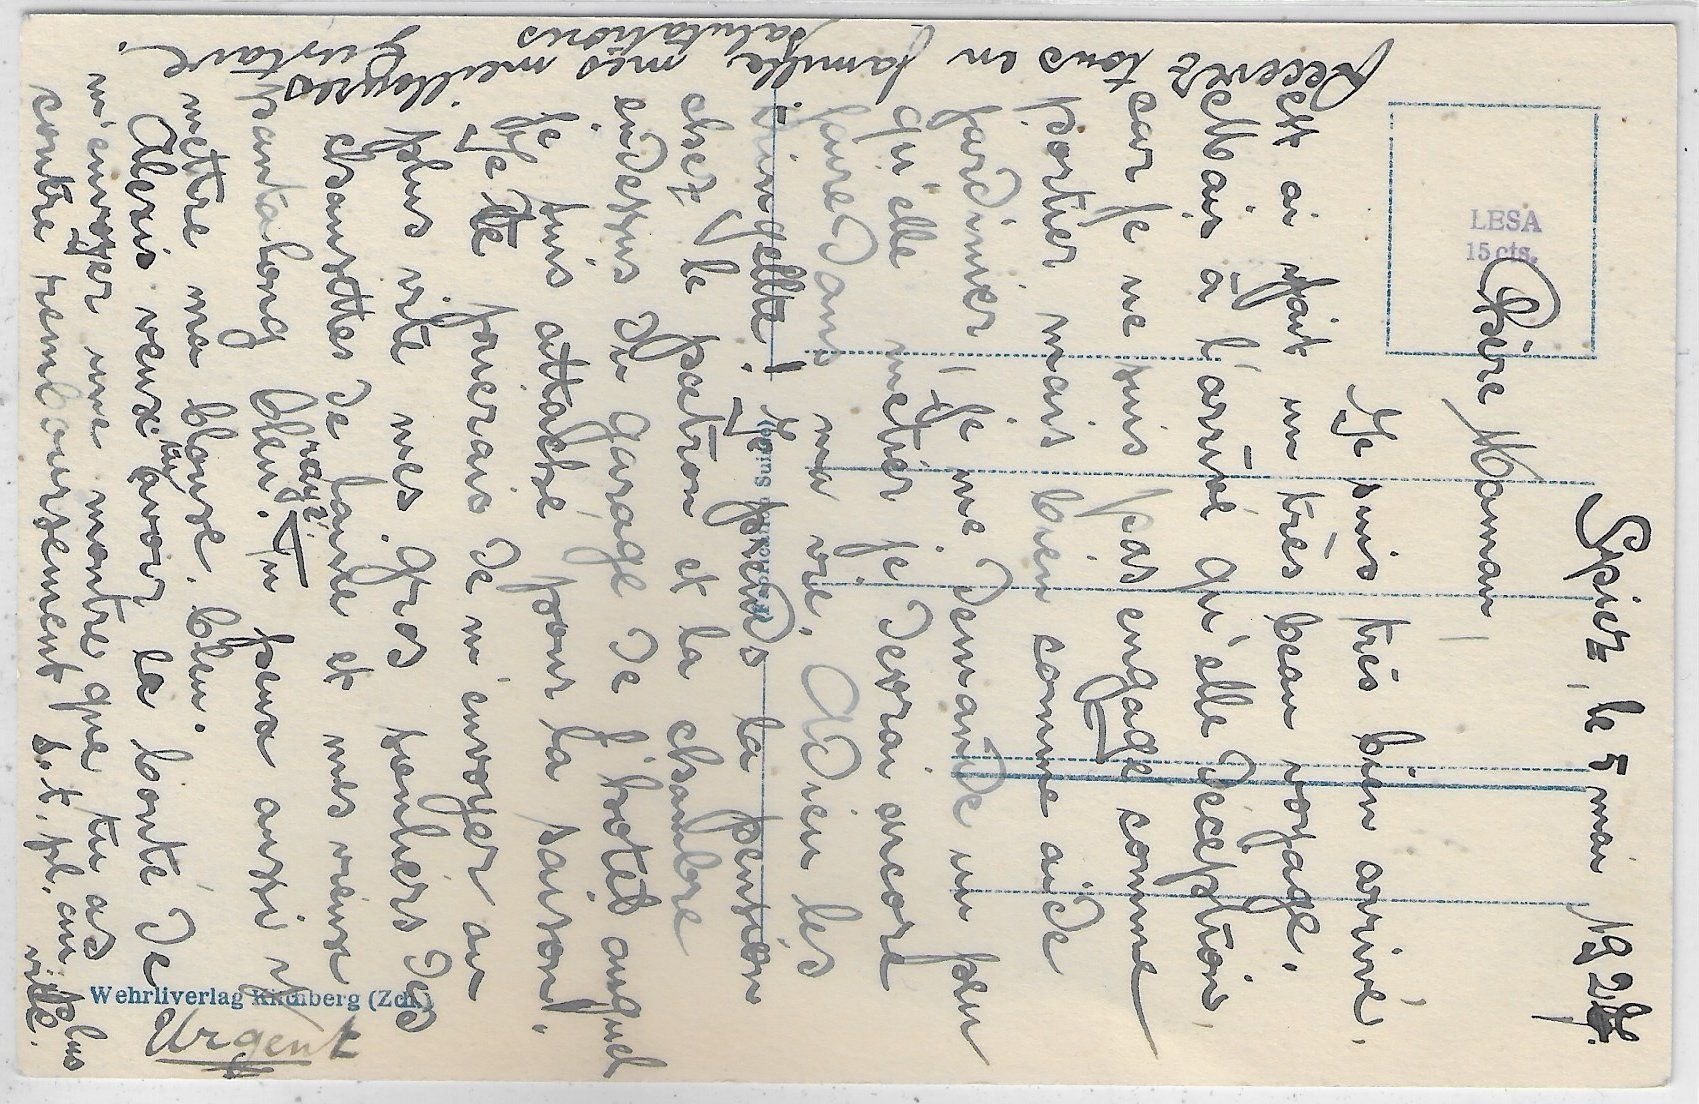 Spiez, le 5 mai 192
Chère Maman,
Je suis très bien arivé.
et ai fait un très beau voyage.
Mais à l'arivé qu'elle déception
car je ne suis pas engagé comme
portier mais bien comme aide
jardinier! Je me demande un peu
qu'elle métier je devrai encore
faire dans ma vie. Adieu les
! Je prends la pension
chez le patron et la chambre
en dessus du garage de l'hotel auquel
je suis attaché pour la saison.
Je te prierais de m'envoyer au
plus vite mes gros souliers des
chausettes de laine et mes vieux
pantalong bleu rayé. Tu peux aussi y
mettre ma blouse bleu.
Alexis veux tu avoir la bonté de
m'envoyer une montre que tu as
contre remboursement s.t.pl. au plus
vite.
Urgent
Recevez tous en famille, mes meilleures
salutations
Gustave.
LESA
15 cts.
(Fabrication Suisse)
Wehrliverlag Kilchberg (Zch.)